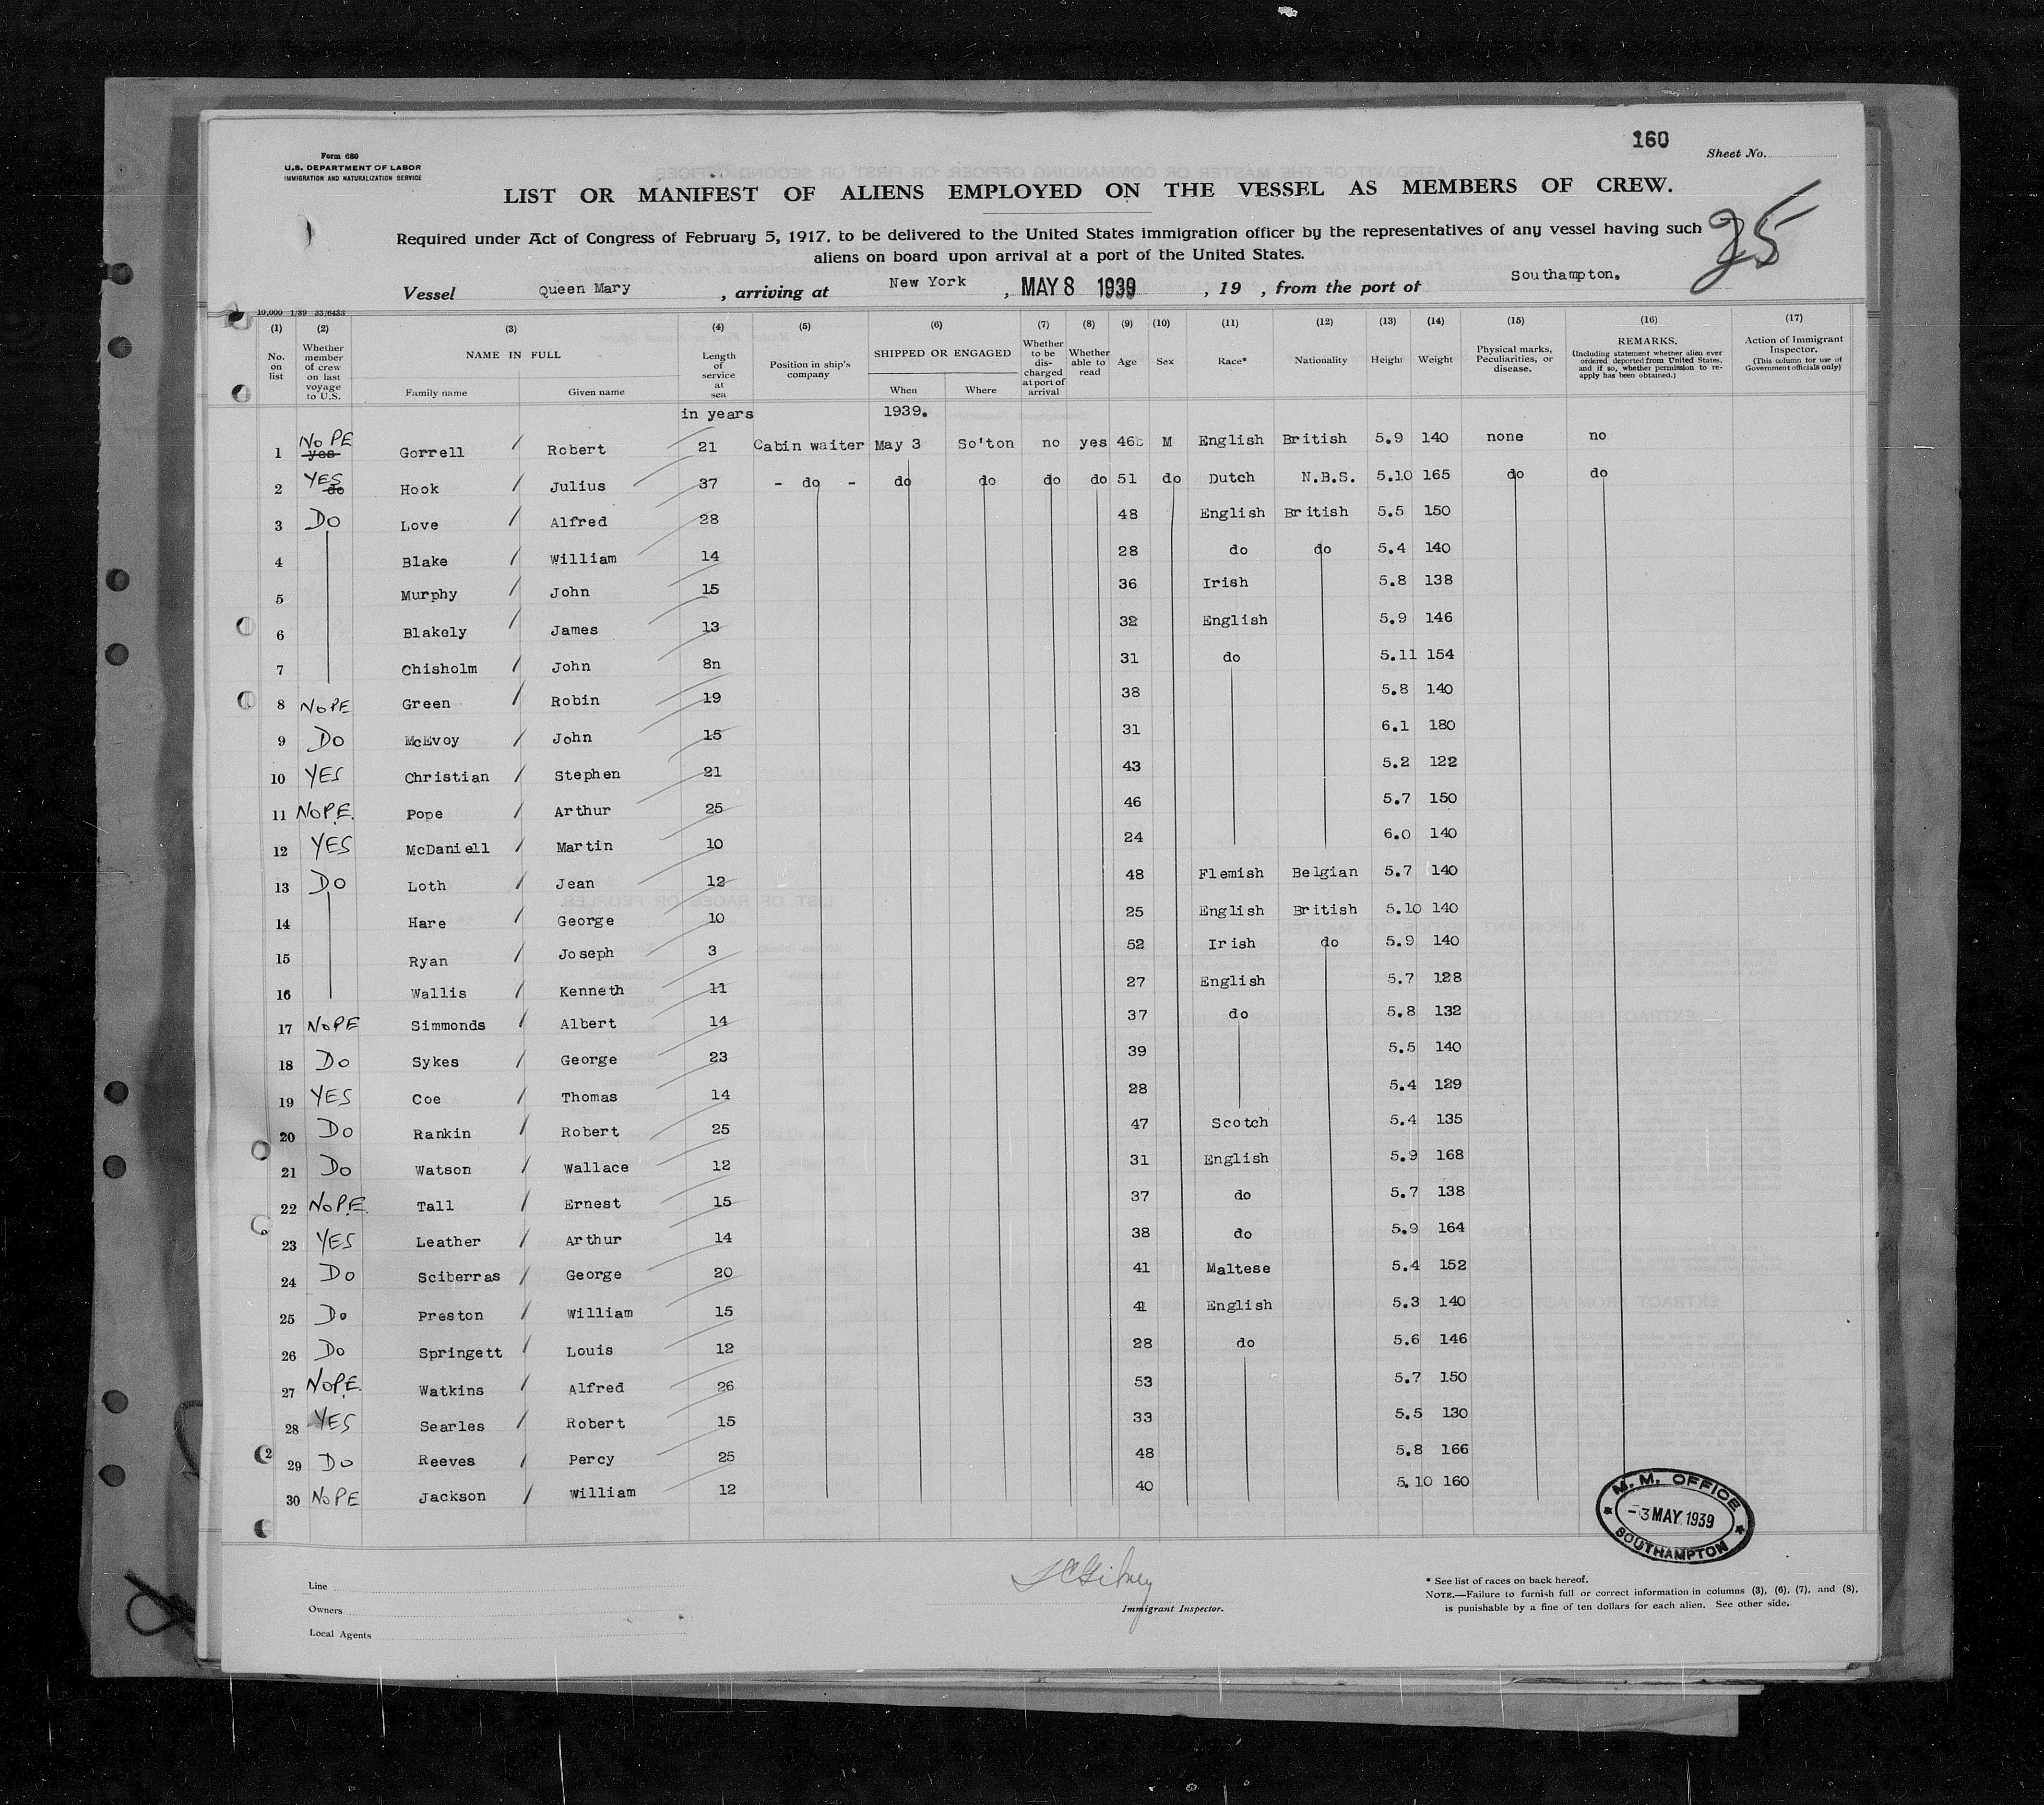 160
Sheet No.
Form 680
U.S. DEPARTMENT OF LABOR
IMMIGRATION AND NATURALIZATION SERVICE
LIST OR MANIFEST OF ALIENS EMPLOYED ON THE VESSEL AS MEMBERS OF CREW.
25
Required under Act of Congress of February 5, 1917, to be delivered to the United States immigration officer by the representatives of any vessel having such
aliens on board upon arrival at a port of the United States.
Vessel Queen Mary , arriving at New York , MAY 8 1939 , 19 , from the port of Southampton.
10,000 1/39 33/6433
(1) (2) (3) (4) (5) (6) (7) (8) (9) (10) (11) (12) (13) (14) (15) (16) (17)
No. on list
Whether member of crew on last voyage to U.S.
NAME IN FULL
Family name Given name
Length of service at sea
Position in ship's company
SHIPPED OR ENGAGED
When Where
Whether to be discharged at port of arrival
Whether able to read
Age
Sex
Race*
Nationality
Height
Weight
Physical marks, Peculiarities, or disease.
REMARKS.
(Including statement whether alien ever ordered deported from United States, and if so, whether permission to re-apply has been obtained.)
Action of Immigrant Inspector.
(This column for use of Government officials only)
in years 1939.
1 NOPE yes Gorrell Robert 21 Cabin waiter May 3 So'ton no yes 46 M English British 5.9 140 none no
2 YES do Hook Julius 37 - do - do do do do 51 do Dutch N.B.S. 5.10 165 do do
3 DO Love Alfred 28 48 English British 5.5 150
4 Blake William 14 28 do do 5.4 140
5 Murphy John 15 36 Irish 5.8 138
6 Blakely James 13 32 English 5.9 146
7 Chisholm John 8n 31 do 5.11 154
8 NOPE Green Robin 19 38 5.8 140
9 DO McEvoy John 15 31 6.1 180
10 YES Christian Stephen 21 43 5.2 122
11 NOPE. Pope Arthur 25 46 5.7 150
12 YES McDaniell Martin 10 24 6.0 140
13 DO Loth Jean 12 48 Flemish Belgian 5.7 140
14 Hare George 10 25 English British 5.10 140
15 Ryan Joseph 3 52 Irish do 5.9 140
16 Wallis Kenneth 11 27 English 5.7 128
17 NOPE Simmonds Albert 14 37 do 5.8 132
18 DO Sykes George 23 39 5.5 140
19 YES Coe Thomas 14 28 5.4 129
20 DO Rankin Robert 25 47 Scotch 5.4 135
21 DO Watson Wallace 12 31 English 5.9 168
22 NOPE. Tall Ernest 15 37 do 5.7 138
23 YES Leather Arthur 14 38 do 5.9 164
24 DO Sciberras George 20 41 Maltese 5.4 152
25 Do Preston William 15 41 English 5.3 140
26 Do Springett Louis 12 28 do 5.6 146
27 NOPE. Watkins Alfred 26 53 5.7 150
28 YES Searles Robert 15 33 5.5 130
29 DO Reeves Percy 25 48 5.8 166
30 NOPE Jackson William 12 40 5.10 160
M. M. OFFICE
-3 MAY 1939
SOUTHAMPTON
Line
Owners
Local Agents
Immigrant Inspector.
* See list of races on back hereof.
NOTE.—Failure to furnish full or correct information in columns (3), (6), (7), and (8),
is punishable by a fine of ten dollars for each alien. See other side.